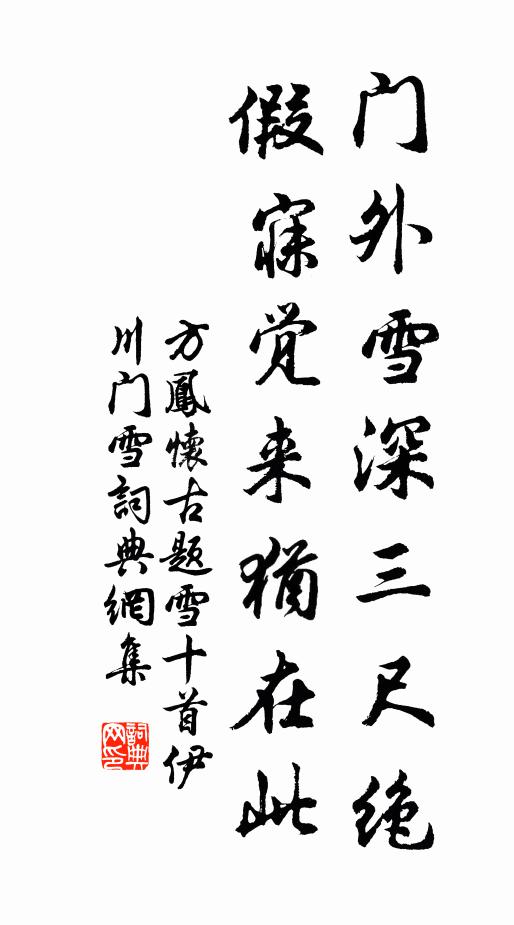 门外雪深三尺绝
假寐觉来犹在此
方鳳懷古题雪十首伊
川门雪詞典網集
詞典
网印